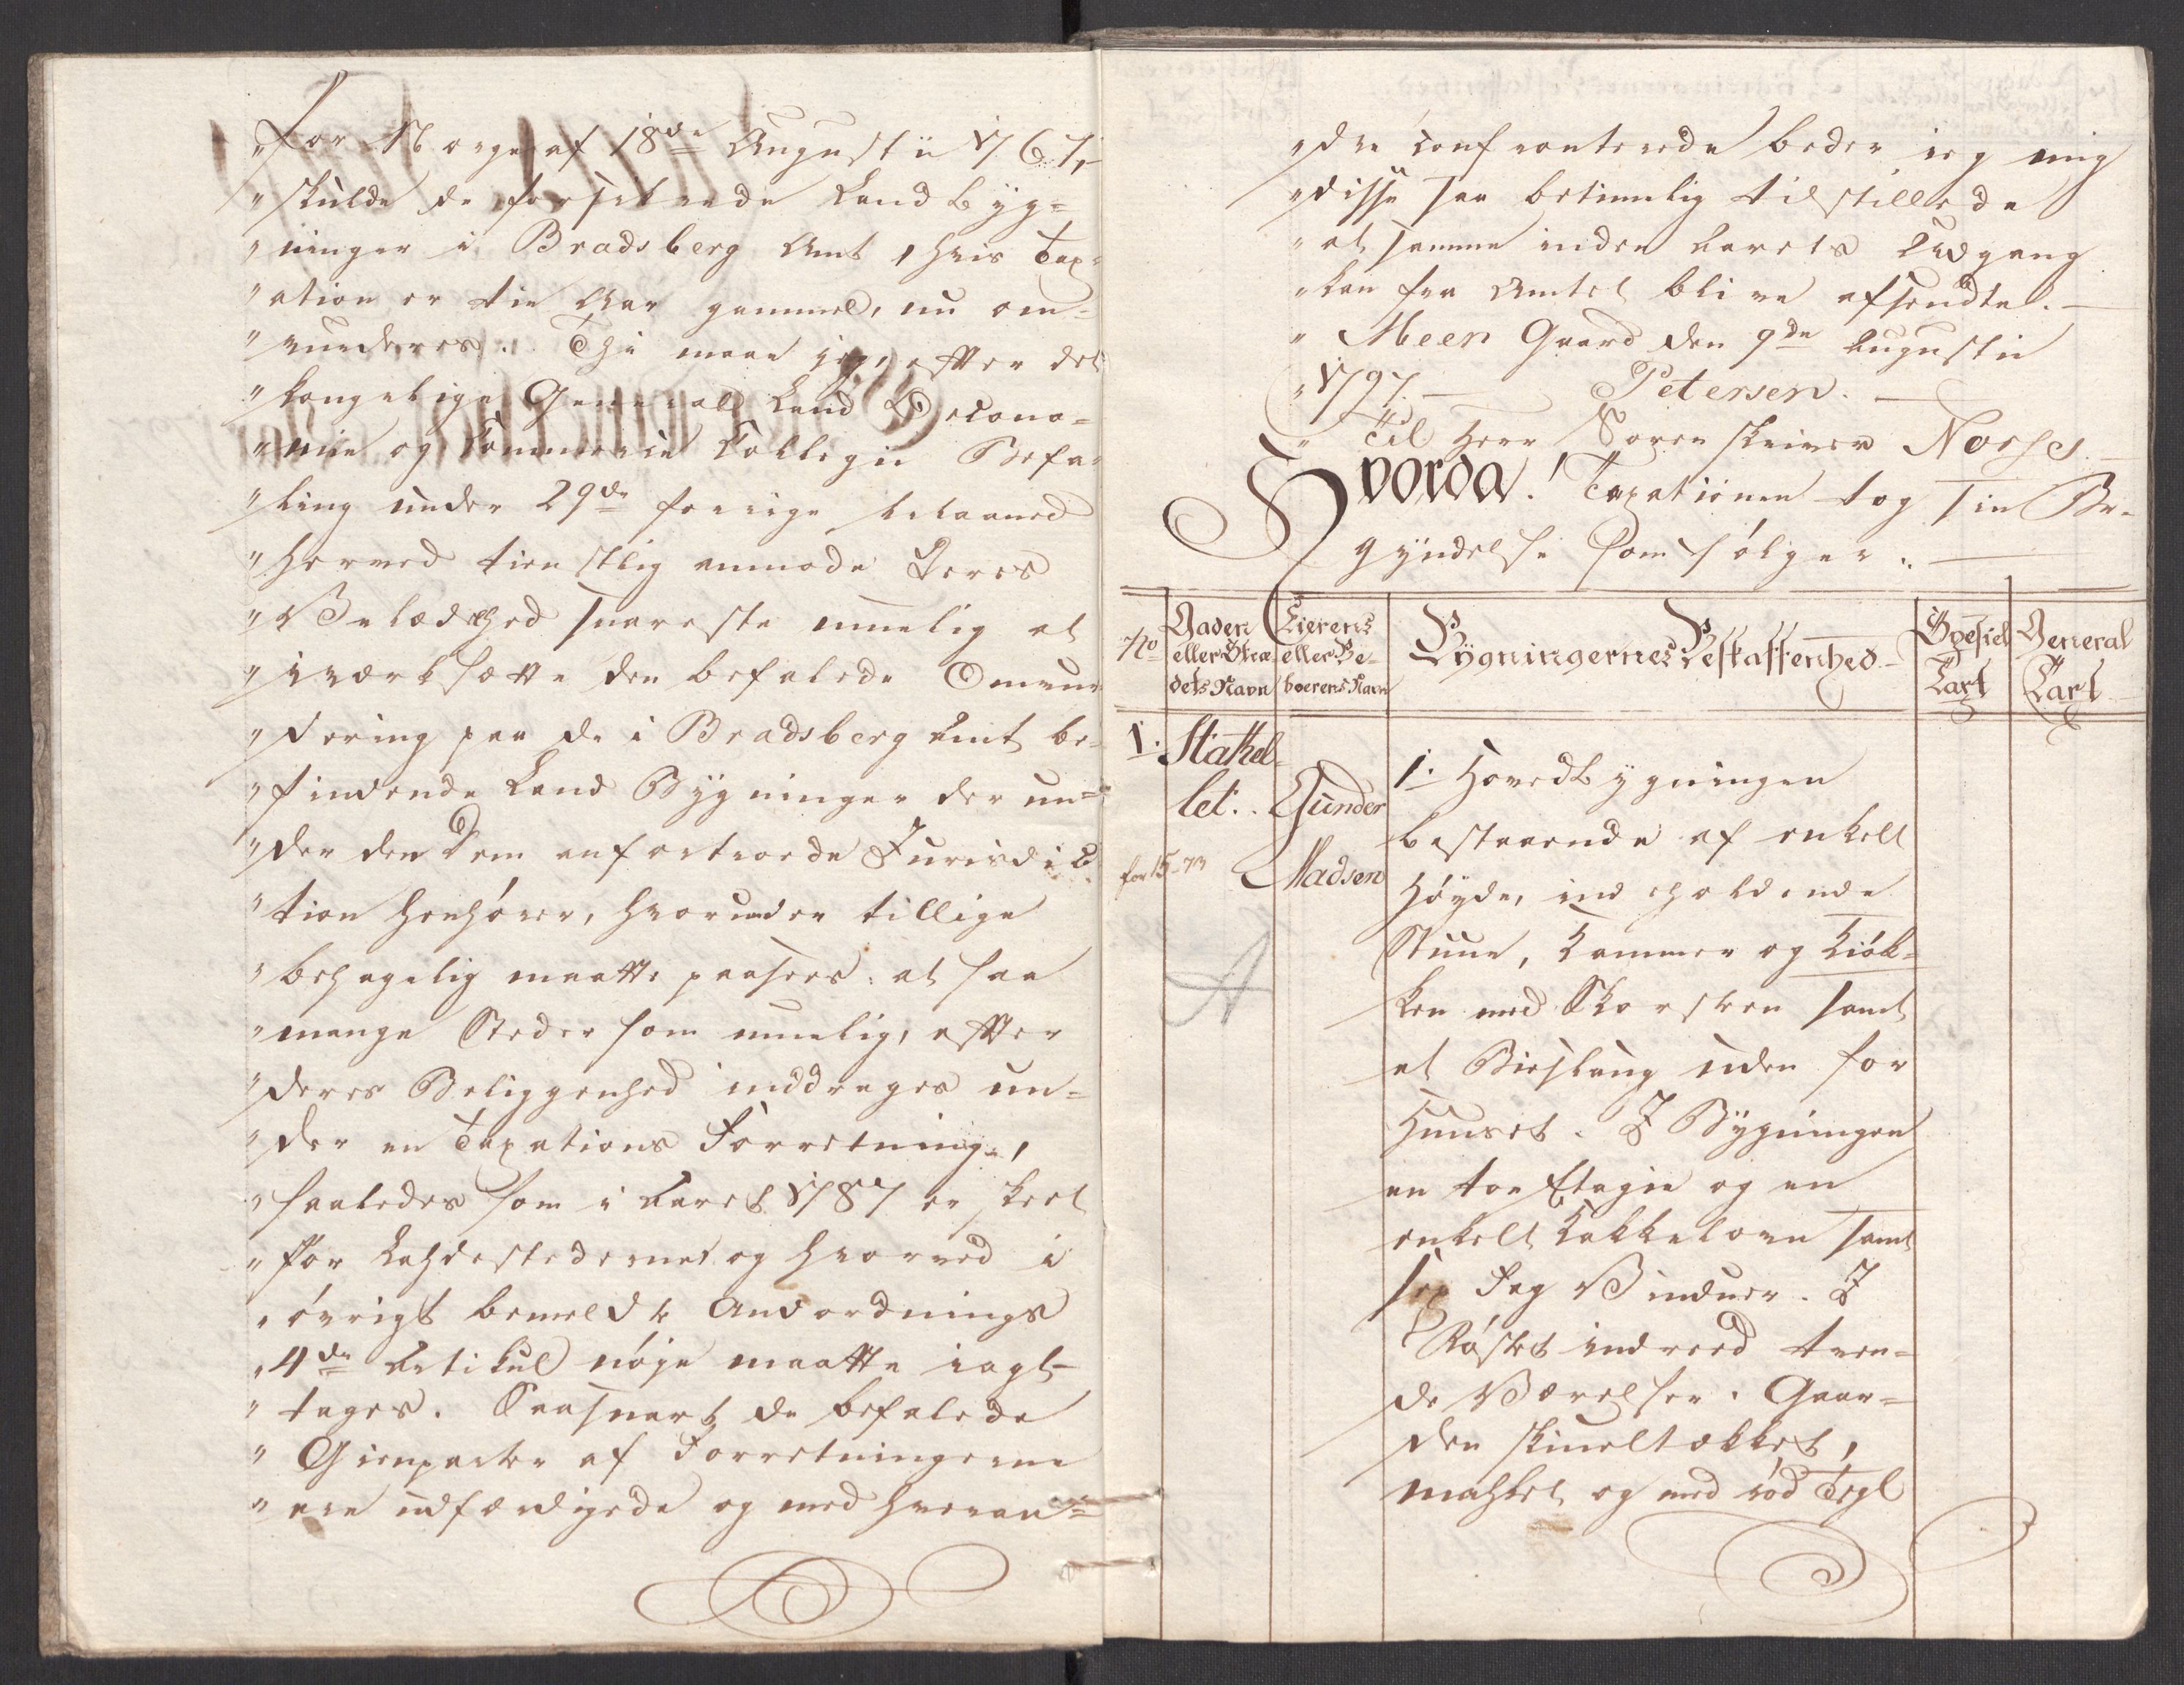 "for Norge af 18de Augustii 1767,
"skulde de forsikrede Landbyg=
"ninger i Bradsberg Amt, hvis Tax=
"ation er tie Aar gammel, nu om=
"vurderes. Thi maae jeg, efter det
"kongelige General Land Oecono=
"mie og Commerce Collegii Befa=
"ling under 29de forrige
"herved tienstlig anmode Deres
"Velædelhed snareste muelig at
"iværksætte den befalede Omvur
"dering paa de i Bradsberg Amt be=
"findende Land Bygninger der un=
"der den Dem anfortroede Jurisdic
"tion henhører, hvorunder tillige
"behagelig maatte paasees: at saa
"mange Steder som muelig, efter
"deres Beliggenhed inddrages un=
"der en Taxations Forretning,
"saaledes som i Aaret 1787 er skeet
"for Ladestederne: og hvorved i
"øvrigt bemeldte Anordnings
"4de Artikul nøje maatte iagt=
"tages. Saasnart de befalede
"Gienparter af Forretningerne
"ere udfærdigede og med hveran=
"dre confronterede beder jeg mig
"disse saa betimelig tilstillede
"at samme inden Aarets Udgang
"kan fra Amtet blive afsendte.
"Meen Gaard den 9de Augustii
"1797. Petersen.
"Til Herr Sorenskriver Norse.
Hvorda! Taxationen tog sin Be=
gyndelse som følger:
No
Gaden eller Stædets Navn
Eierens eller Beboerens Navn
Bygningernes Beskaffenhed
Spesiel Taxt
General Taxt
1. Stathel=
let. Gunder
Madsen
for 15-73
A
1. Hovedbygningen
bestaaende af enkelt
Høyde, indeholdende
Stuue, Kammer og Kiøk=
ken med Skorsteen samt
et Bieslaug uden for
Huuset. I Bygningen
en toe Etagie og en
enkelt Kakkelovn samt
sex Fag Vinduer. I
Røstet indreed tven=
de Værelser. Gaar=
den skineltækket,
mahlet og med rød Tegl